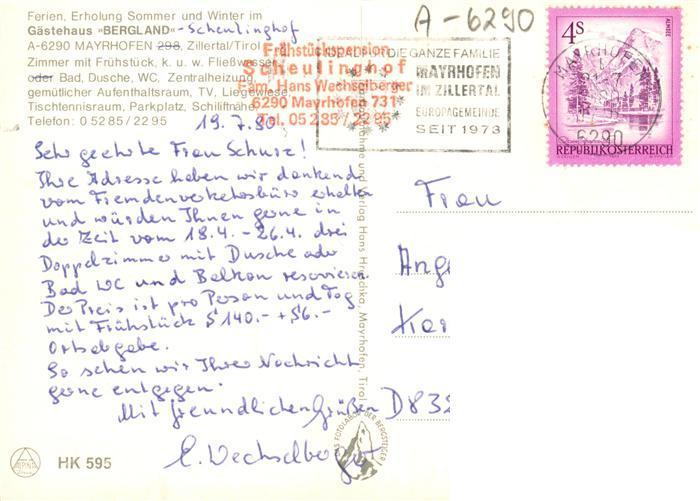 Ferien, Erholung Sommer und Winter im
Gästehaus »BERGLAND« - Scheulinghof
A-6290 MAYRHOFEN 298, Zillertal/Tirol
Zimmer mit Frühstück, k. u. w. Fließwasser
oder Bad, Dusche, WC, Zentralheizung,
gemütlicher Aufenthaltsraum, TV, Liegewiese,
Tischtennisraum, Parkplatz, Schiliftnähe.
Telefon: 0 52 85 / 22 95
Frühstückspension
Scheulinghof
Fam. Hans Wechselberger
6290 Mayrhofen 731
Tel. 05285/2295
A-6290
DIE GANZE FAMILIE
MAYRHOFEN
IM ZILLERTAL
EUROPAGEMEINDE
SEIT 1973
4S
ALMSEE
MAYRHOFEN
6290
REPUBLIK ÖSTERREICH
19.7.80
Sehr geehrte Frau Schurz!
Ihre Adresse haben wir dankend
vom Fremdenverkehrsbüro erhalten
und würden Ihnen gerne in
der Zeit vom 18.4. - 26.4. drei
Doppelzimmer mit Dusche oder
Bad WC und Balkon reservieren.
Der Preis ist pro Person und Tag
mit Frühstück S 140.- + S6.-
Ortsabgabe.
So sehen wir Ihrer Nachricht
gerne entgegen.
Mit freundlichen Grüßen
E. Wechselberger
Verlag Hans Hruschka, Mayrhofen, Tirol
DAS FOTOLABOR DER BERGSTEIGER
Frau
Ang
D832
ALPINA
HK 595